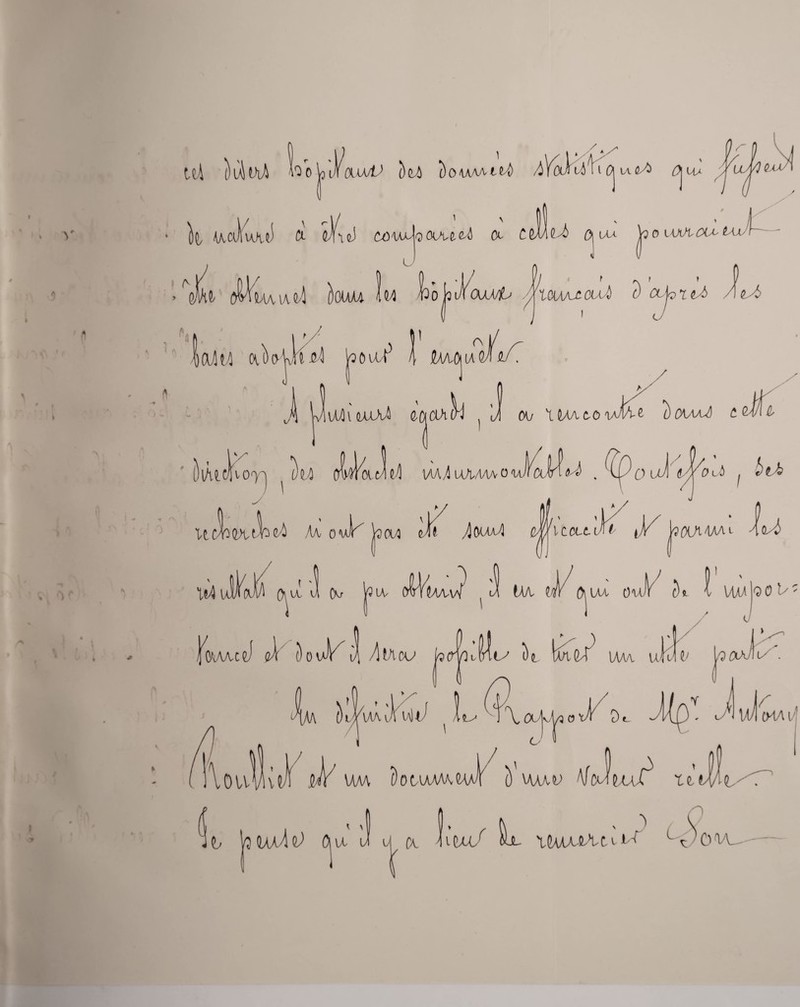 tes divers hôpitaux des données statistiques qui fussent
de nature à être comparées à celles qui pourraient
être obtenues dans les hôpitaux français d'après les
bases adoptées pour l'enquête.
A plusieurs égards, il a rencontré dans cette
direction, des obstacles insurmontables. Toutefois, ses
recherches n'ont pas été sans efficacité et parmi les
résultats qu'il a pu obtenir, il en est qui ont de l'impor-
tance et dont il sera possible de tirer un utile parti.
En définitive, le Rapport de Mgr. Antony
Roulliet est un document d'une valeur réelle.
Je pense qu'il y a lieu de remercier Son